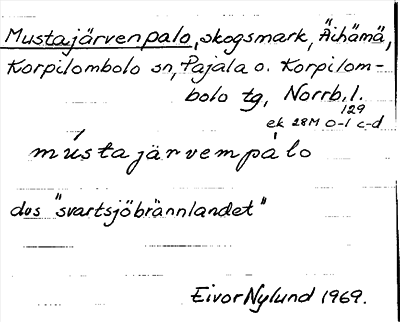 Mustajärvenpalo, skogsmark, Äihämä,
Korpilombolo sn, Pajala o. Korpilom-
bolo tg, Norrb. l.
129
ek 28M 0-1 c-d
mústajärvempàlo
dvs "svartsjöbrännlandet"
Eivor Nylund 1969.